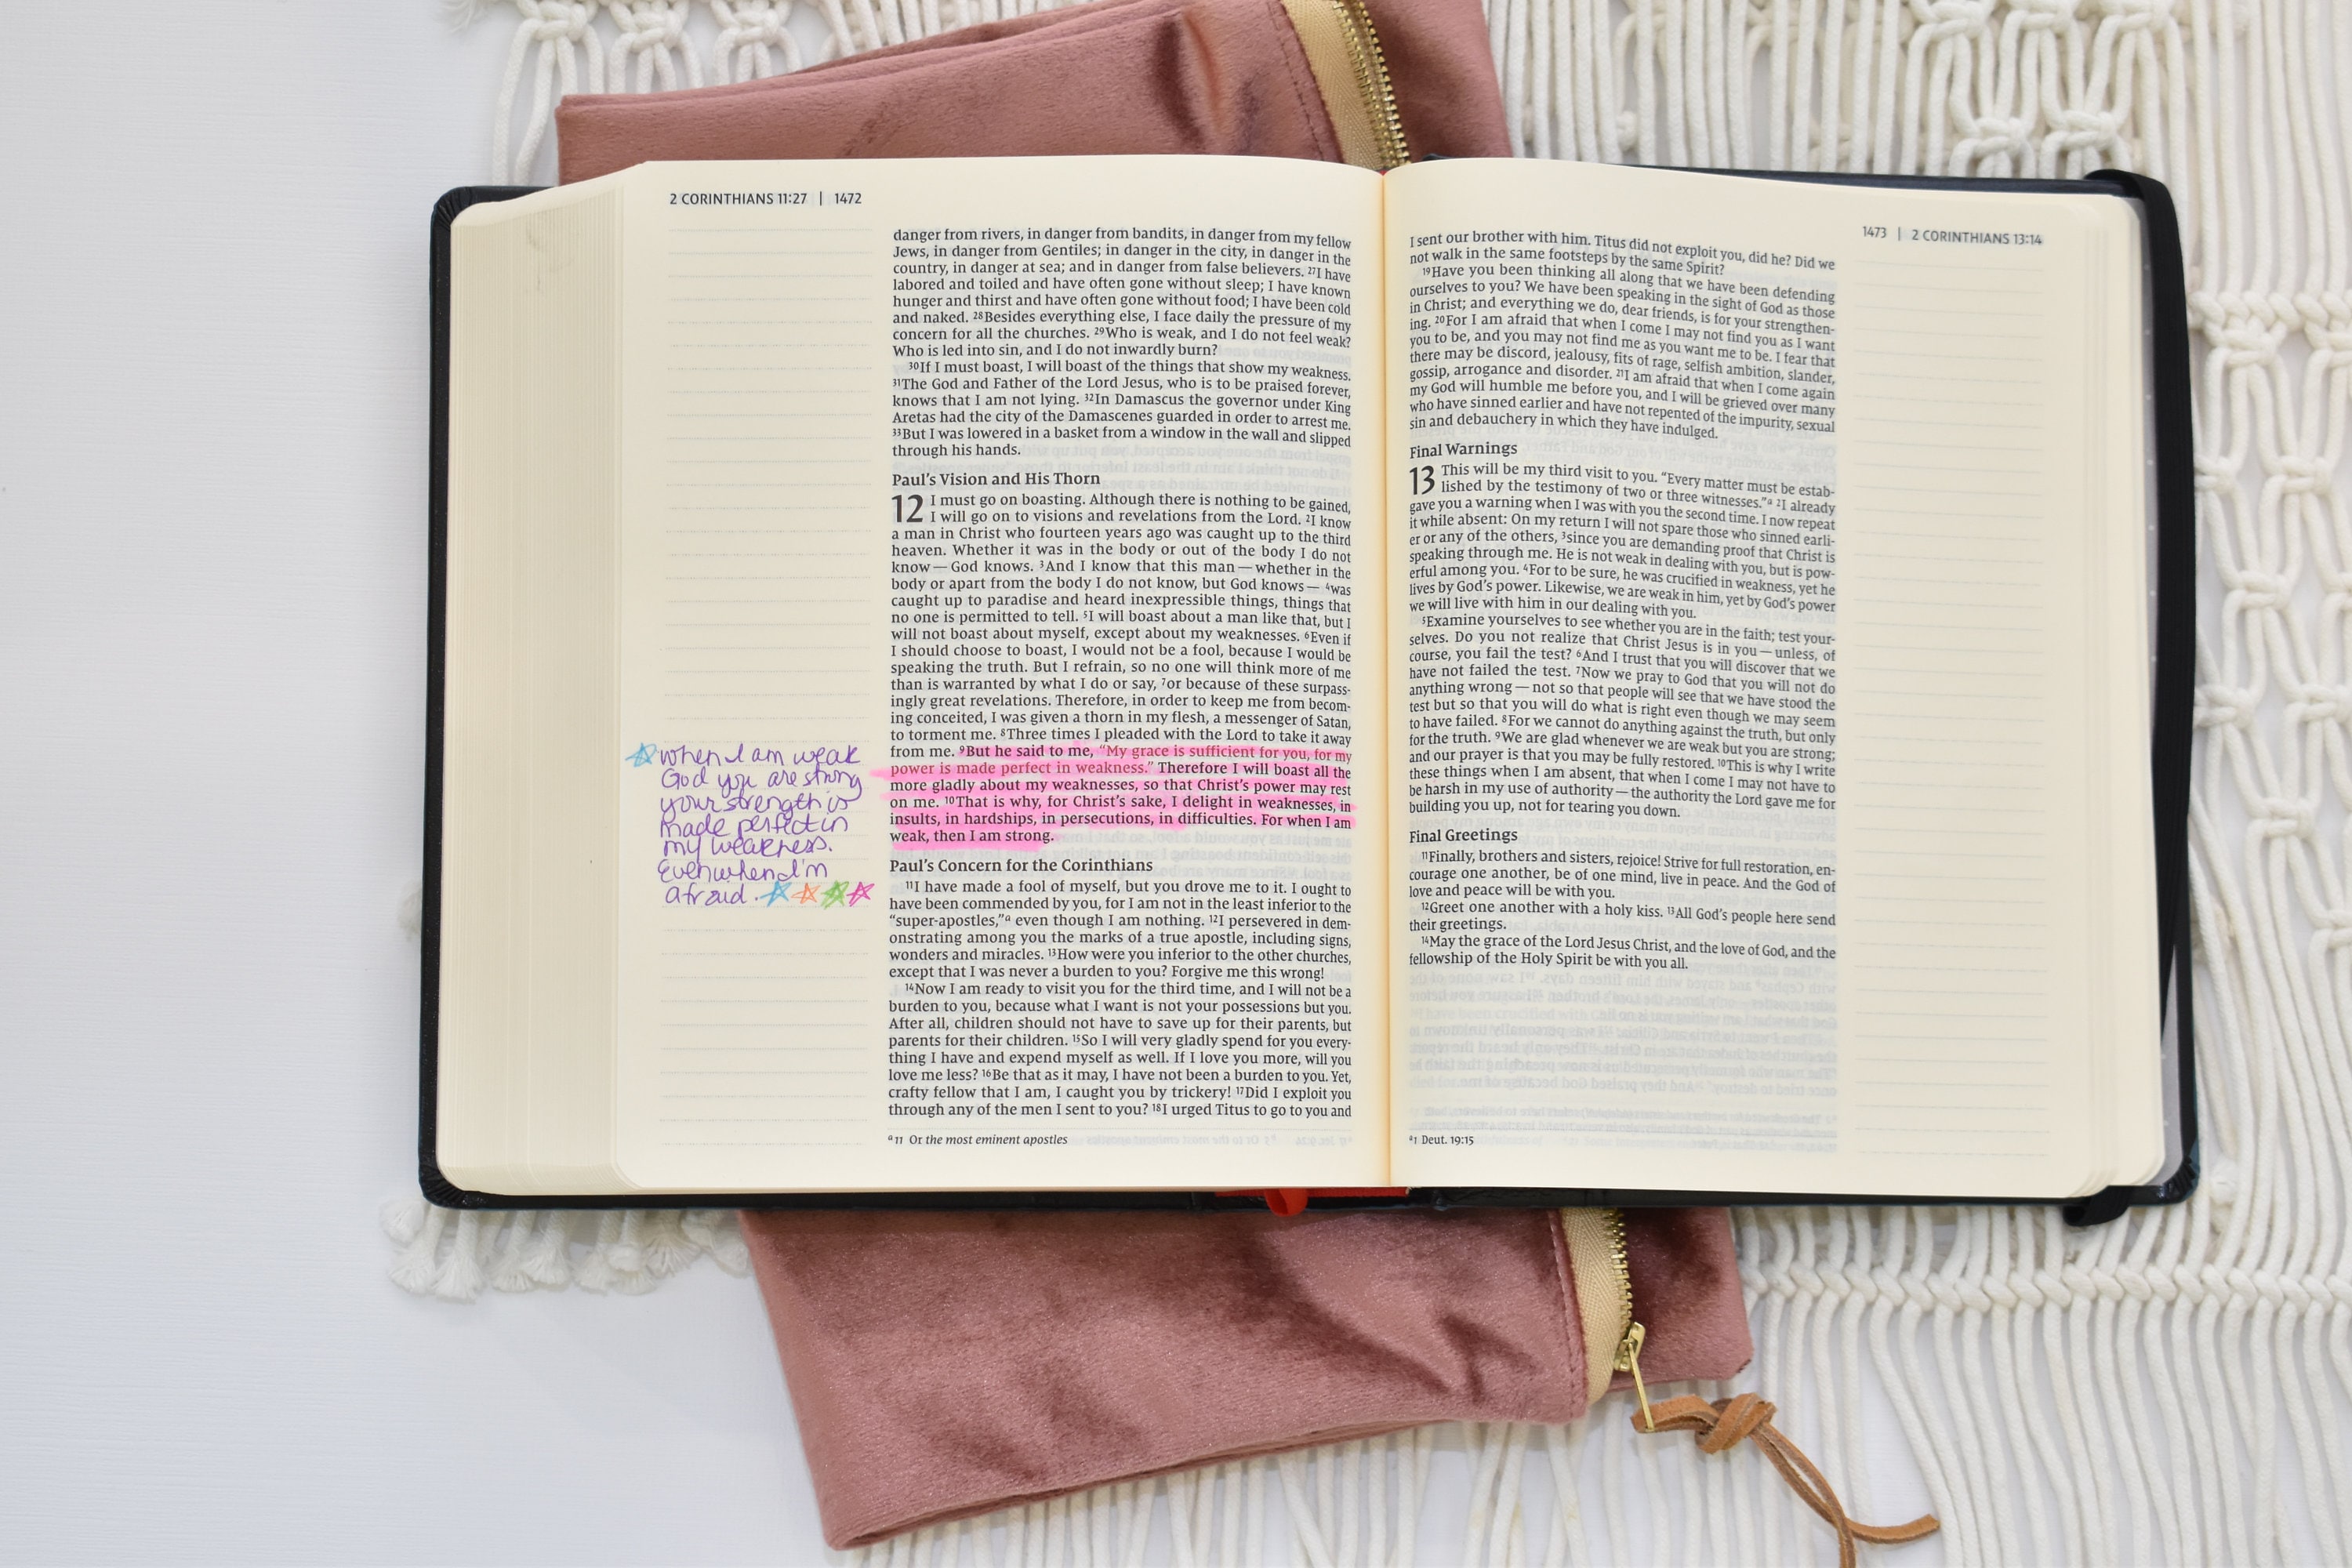 2 CORINTHIANS 11:27 | 1472
danger from rivers, in danger from bandits, in danger from my fellow
Jews, in danger from Gentiles; in danger in the city, in danger in the
country, in danger at sea; and in danger from false believers. 27I have
labored and toiled and have often gone without sleep; I have known
hunger and thirst and have often gone without food; I have been cold
and naked. 28Besides everything else, I face daily the pressure of my
concern for all the churches. 29Who is weak, and I do not feel weak?
Who is led into sin, and I do not inwardly burn?
30If I must boast, I will boast of the things that show my weakness.
31The God and Father of the Lord Jesus, who is to be praised forever,
knows that I am not lying. 32In Damascus the governor under King
Aretas had the city of the Damascenes guarded in order to arrest me.
33But I was lowered in a basket from a window in the wall and slipped
through his hands.
Paul's Vision and His Thorn
12 I must go on boasting. Although there is nothing to be gained,
I will go on to visions and revelations from the Lord. 2I know
a man in Christ who fourteen years ago was caught up to the third
heaven. Whether it was in the body or out of the body I do not
know — God knows. 3And I know that this man — whether in the
body or apart from the body I do not know, but God knows — 4was
caught up to paradise and heard inexpressible things, things that
no one is permitted to tell. 5I will boast about a man like that, but I
will not boast about myself, except about my weaknesses. 6Even if
I should choose to boast, I would not be a fool, because I would be
speaking the truth. But I refrain, so no one will think more of me
than is warranted by what I do or say, 7or because of these surpass-
ingly great revelations. Therefore, in order to keep me from becom-
ing conceited, I was given a thorn in my flesh, a messenger of Satan,
to torment me. 8Three times I pleaded with the Lord to take it away
from me. 9But he said to me, “My grace is sufficient for you, for my
power is made perfect in weakness.” Therefore I will boast all the
more gladly about my weaknesses, so that Christ's power may rest
on me. 10That is why, for Christ's sake, I delight in weaknesses, in
insults, in hardships, in persecutions, in difficulties. For when I am
weak, then I am strong.
when I am weak
God you are strong
your strength is
made perfect in
my weakness.
Even when I'm
afraid.
Paul's Concern for the Corinthians
11I have made a fool of myself, but you drove me to it. I ought to
have been commended by you, for I am not in the least inferior to the
“super-apostles,”a even though I am nothing. 12I persevered in dem-
onstrating among you the marks of a true apostle, including signs,
wonders and miracles. 13How were you inferior to the other churches,
except that I was never a burden to you? Forgive me this wrong!
14Now I am ready to visit you for the third time, and I will not be a
burden to you, because what I want is not your possessions but you.
After all, children should not have to save up for their parents, but
parents for their children. 15So I will very gladly spend for you every-
thing I have and expend myself as well. If I love you more, will you
love me less? 16Be that as it may, I have not been a burden to you. Yet,
crafty fellow that I am, I caught you by trickery! 17Did I exploit you
through any of the men I sent to you? 18I urged Titus to go to you and
a11 Or the most eminent apostles
1473 | 2 CORINTHIANS 13:14
I sent our brother with him. Titus did not exploit you, did he? Did we
not walk in the same footsteps by the same Spirit?
19Have you been thinking all along that we have been defending
ourselves to you? We have been speaking in the sight of God as those
in Christ; and everything we do, dear friends, is for your strengthen-
ing. 20For I am afraid that when I come I may not find you as I want
you to be, and you may not find me as you want me to be. I fear that
there may be discord, jealousy, fits of rage, selfish ambition, slander,
gossip, arrogance and disorder. 21I am afraid that when I come again
my God will humble me before you, and I will be grieved over many
who have sinned earlier and have not repented of the impurity, sexual
sin and debauchery in which they have indulged.
Final Warnings
13 This will be my third visit to you. “Every matter must be estab-
lished by the testimony of two or three witnesses.”a 2I already
gave you a warning when I was with you the second time. I now repeat
it while absent: On my return I will not spare those who sinned earli-
er or any of the others, 3since you are demanding proof that Christ is
speaking through me. He is not weak in dealing with you, but is pow-
erful among you. 4For to be sure, he was crucified in weakness, yet he
lives by God's power. Likewise, we are weak in him, yet by God's power
we will live with him in our dealing with you.
5Examine yourselves to see whether you are in the faith; test your-
selves. Do you not realize that Christ Jesus is in you — unless, of
course, you fail the test? 6And I trust that you will discover that we
have not failed the test. 7Now we pray to God that you will not do
anything wrong — not so that people will see that we have stood the
test but so that you will do what is right even though we may seem
to have failed. 8For we cannot do anything against the truth, but only
for the truth. 9We are glad whenever we are weak but you are strong;
and our prayer is that you may be fully restored. 10This is why I write
these things when I am absent, that when I come I may not have to
be harsh in my use of authority — the authority the Lord gave me for
building you up, not for tearing you down.
Final Greetings
11Finally, brothers and sisters, rejoice! Strive for full restoration, en-
courage one another, be of one mind, live in peace. And the God of
love and peace will be with you.
12Greet one another with a holy kiss. 13All God's people here send
their greetings.
14May the grace of the Lord Jesus Christ, and the love of God, and the
fellowship of the Holy Spirit be with you all.
a1 Deut. 19:15